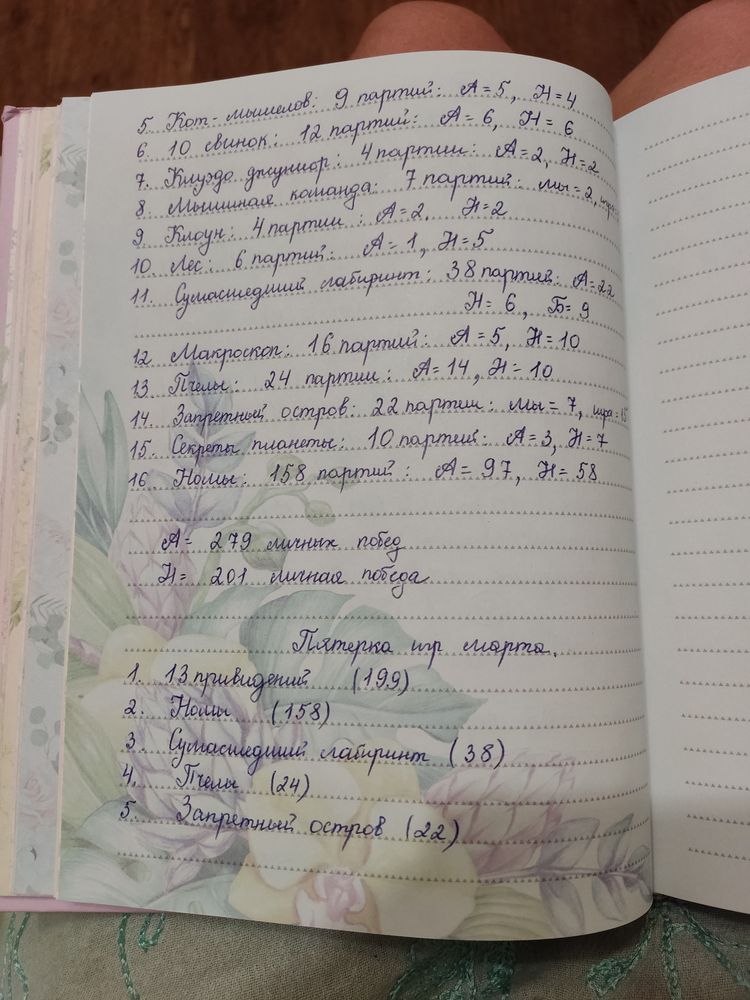 5. Кот-мышелов: 9 партий: А=5, Н=4
6. 10 свинок: 12 партий: А=6, Н=6
7. Клуэдо джуниор: 4 партии: А=2, Н=2
8. Мышиная команда: 7 партий: мы=2,
9 Клоун: 4 партии: А=2. Н=2
10. Лес: 6 партий: А=1, Н=5
11. Сумасшедший лабиринт: 38 партий: А=22
Н=6, Б=9
12 Макроскоп: 16 партий: А=5, Н=10
13 Пчелы: 24 партии: А=14, Н=10
14. Запретный остров: 22 партии: мы=7, игра=15
15. Секреты планеты: 10 партий: А=3, Н=7
16 Номы: 158 партий: А=97, Н=58
А= 279 личных побед
Н= 201 личная победа
Пятерка игр марта.
1. 13 привидений (199)
2. Номы (158)
3. Сумасшедший лабиринт (38)
4. Пчелы (24)
5. Запретный остров (22)